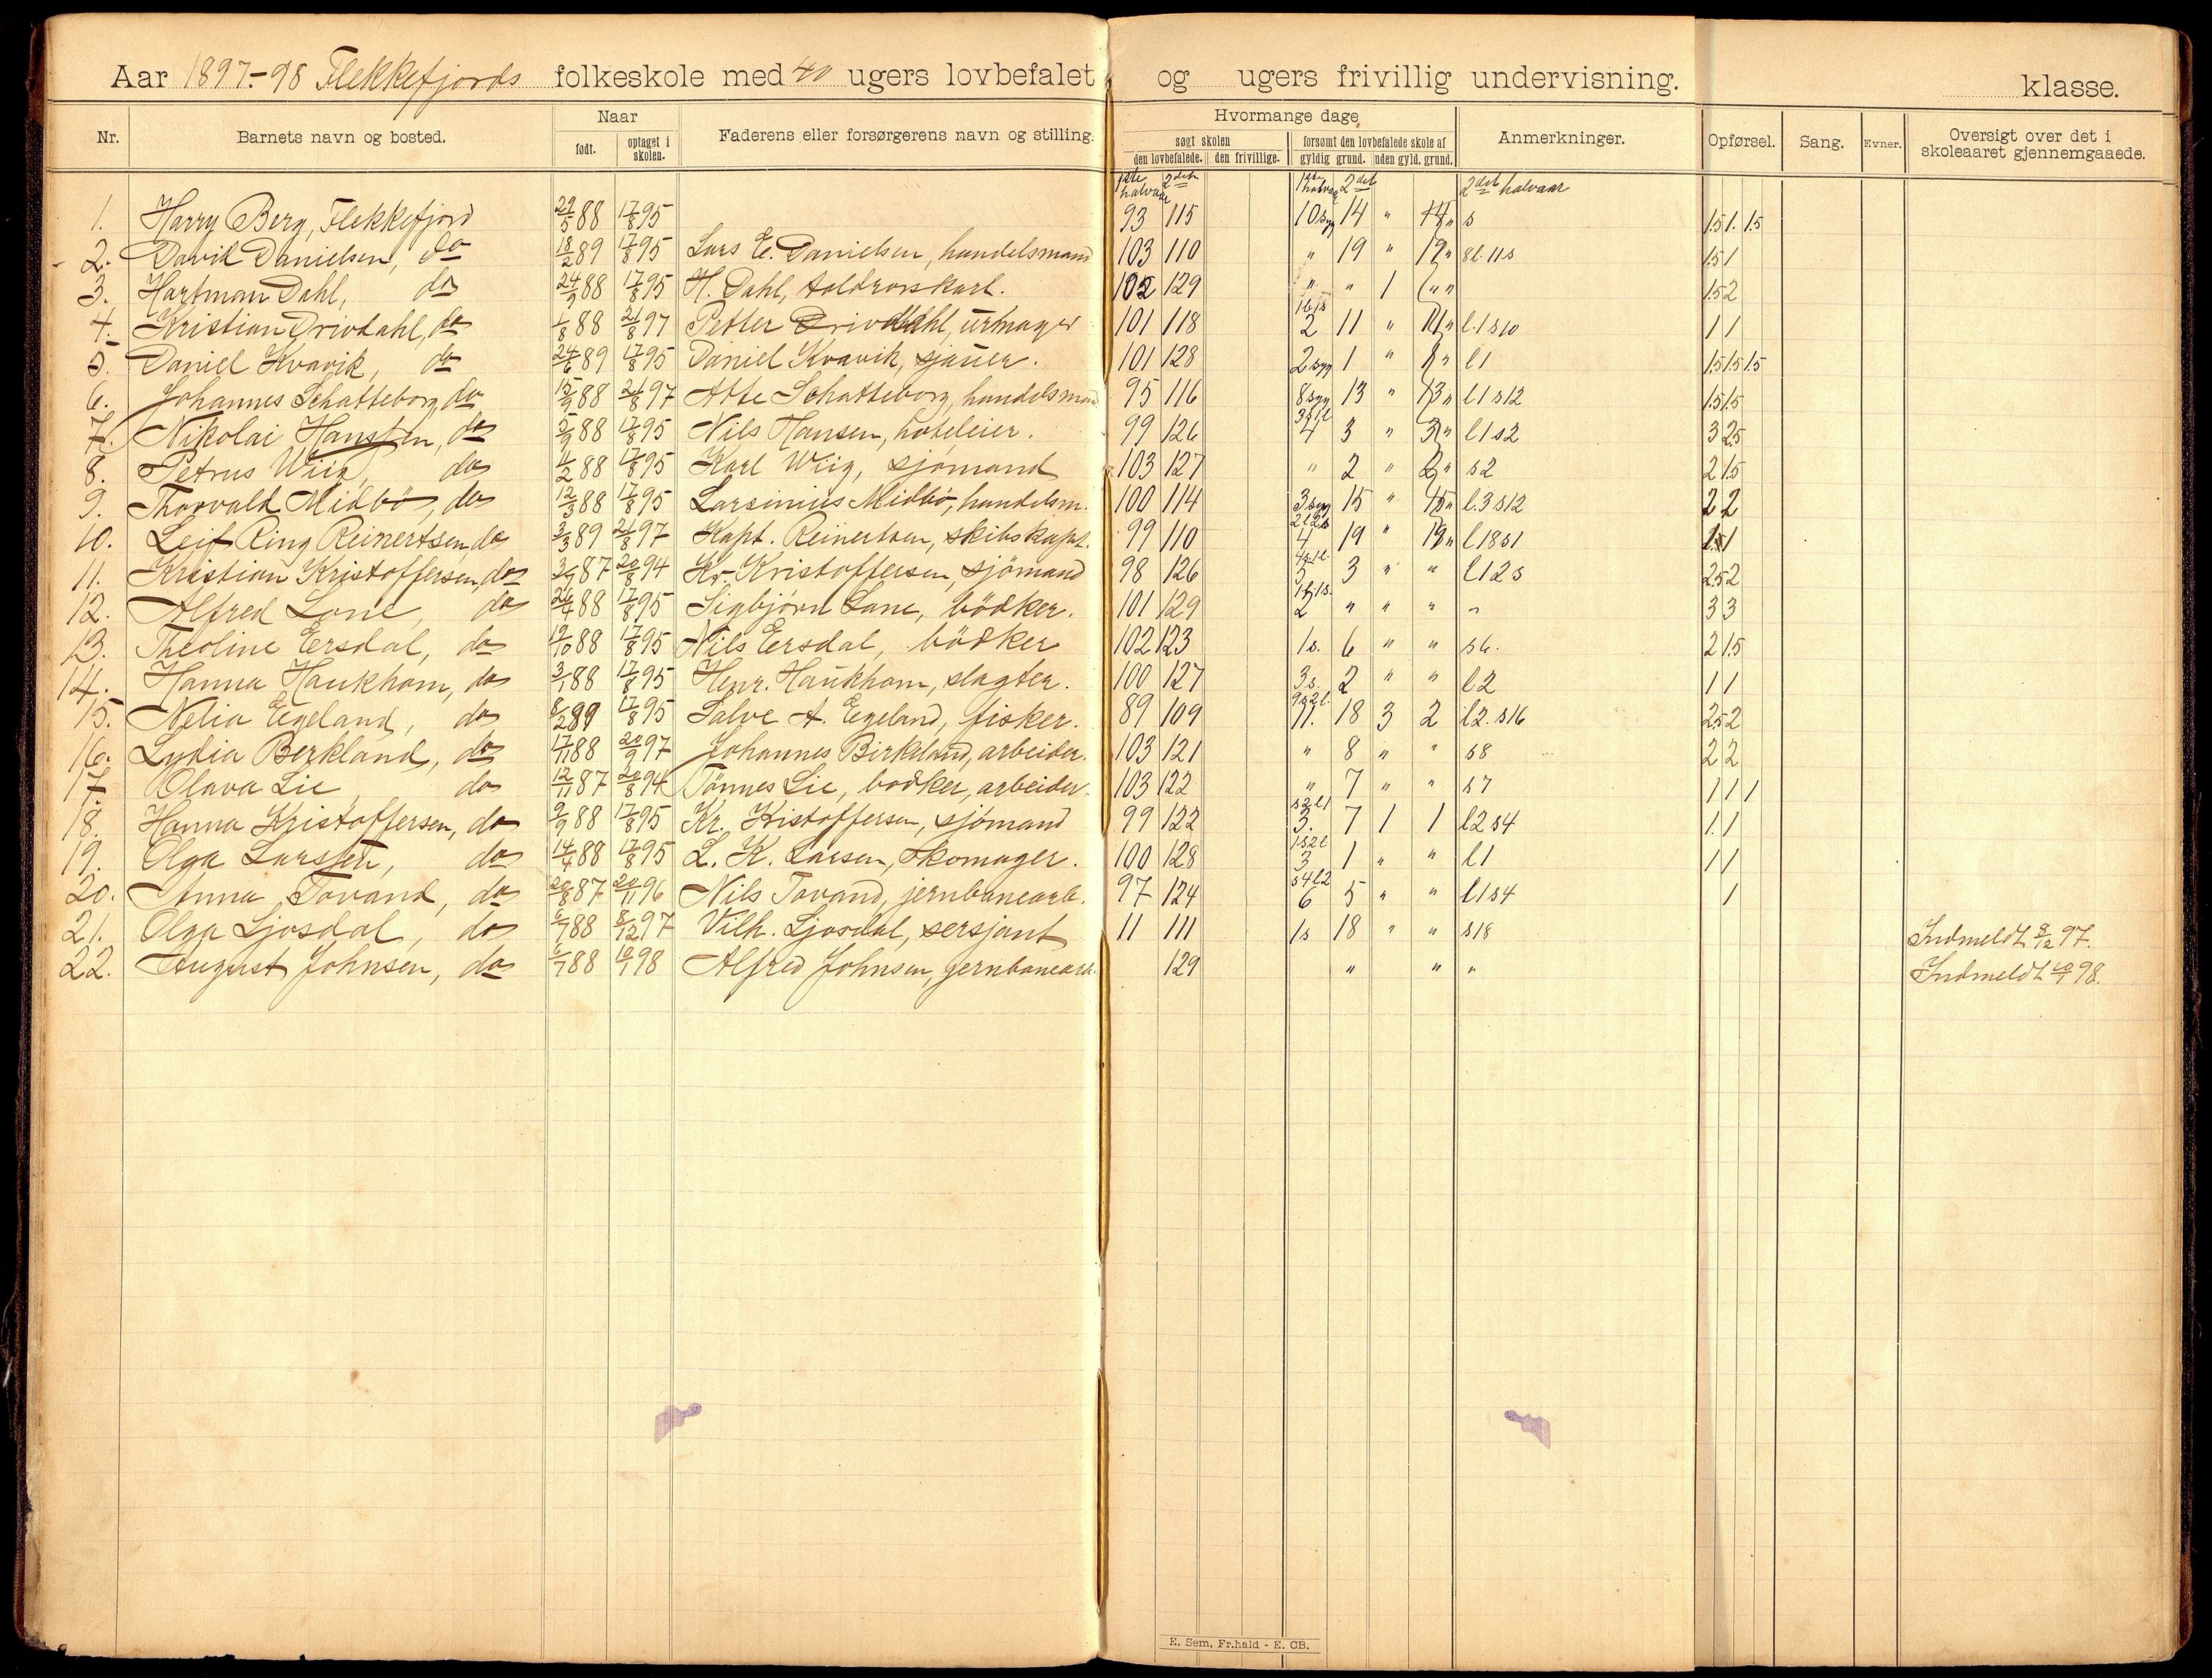 Aar 1897-98 Flekkefjords folkeskole med 40 ugers lovbefalet og ugers frivillig undervisning. klasse.
Nr. Barnets navn og bosted. Naar født. optaget i skolen. Faderens eller forsørgerens navn og stilling. Hvormange dage søgt skolen den lovbefalede. den frivillige. forsømt den lovbefalede skole af gyldig grund. uden gyld. grund. Anmerkninger. Opførsel. Sang. Evner. Oversigt over det i skoleaaret gjennemgaaede.
1ste halvaar 2det 1ste halvaar 2det 2det halvaar
1. Harry Berg, Flekkefjord 29/5 88 17/8 95 93 115 10 syg 14 " s 1.5 1. 1.5
2. David Danielsen, do 18/2 89 17/8 95 Lars E. Danielsen, handelsmand 103 110 " 19 " 8l. 11s 1.5 1
3. Hartman Dahl, do 24/9 88 17/8 95 H. Dahl, toldrorskarl. 102 129 " " 1 1.5 2
4. Kristian Drivdahl, do 1/8 88 21/8 97 Petter Drivdahl, urmager 101 118 2 11 " l. 1 s10 1 1
5. Daniel Kvavik, do 24/6 89 17/8 95 Daniel Kvavik, sjauer. 101 128 2 syg 1 " l1 1.5 1.5 1.5
6. Johannes Schatteborg, do 15/9 88 21/8 97 Atte Schatteborg, handelsmand 95 116 8 syg 13 " l1 s12 1.5 1.5
7. Nikolai Hansen, do 2/9 88 17/8 95 Nils Hansen, hoteleier. 99 126 4 3 " l1 s2 3 2.5
8. Petrus Wiig, do 11/2 88 17/8 95 Karl Wiig, sjömand 103 127 " 2 " s2 2 1.5
9. Thorvald Midbö, do 12/3 88 17/8 95 Larsinius Midbö, handelsm. 100 114 3 syg 15 " l.3 s12 2 2
10. Leif Ring Reinertsen, do 3/3 89 21/8 97 Kapt. Reinertsen, skibskapt. 99 110 4 19 " l18 s1 1
11. Kristian Kristoffersen, do 87 20/8 94 Kr. Kristoffersen, sjömand 98 126 5 3 " " l1 2s 2.5 2
12. Alfred Lone, do 26/4 88 17/8 95 Sigbjörn Lone, bödker. 101 129 2 " " " " 3 3
13. Theoline Eersdal, do 19/10 88 17/8 95 Nils Eersdal, bödker 102 123 1s. 6 " " s6. 2 1.5
14. Hanna Haukhom, do 3/1 88 17/8 95 Henr. Haukhom, slagter. 100 127 3s. 2 " " l2 1 1
15. Nelia Egeland, do 8/2 89 17/8 95 Salve A. Egeland, fisker. 89 109 9s2l. 11. 18 3 2 l2. s16 2.5 2
16. Lydia Berkland, do 17/11 88 20/9 97 Johannes Birkeland, arbeider. 103 121 " 8 " " s8 2 2
17. Olava Lie, do 12/11 87 20/8 94 Tönnes Lie, bödker, arbeider. 103 122 " 7 " " s7 1 1 1
18. Hanna Kristoffersen, do 9/9 88 17/8 95 Kr. Kristoffersen, sjömand 99 122 s2l1 3. 7 1 1 l2 s4 1 1
19. Olga Larssen, do 14/4 88 17/8 95 L. K. Larsen, skomager. 100 128 1s2l 3 1 " " l1 1 1
20. Anna Tovand, do 20/8 87 20/11 96 Nils Tovand, jernbanearb. 97 124 s4l2 6 5 " " l1 s4 1
21. Olga Ljosdal, do 6/1 88 8/12 97 Vilh. Ljosdal, sersjant 11 111 1s 18 " " s18 Indmeldt 8/12 97.
22. August Johnsen, do 6/7 88 10/1 98 Alfred Johnsen, jernbanearb. 129 " " " Indmeldt 10/1 98.
E. Sem, Fr.hald - E. CB.